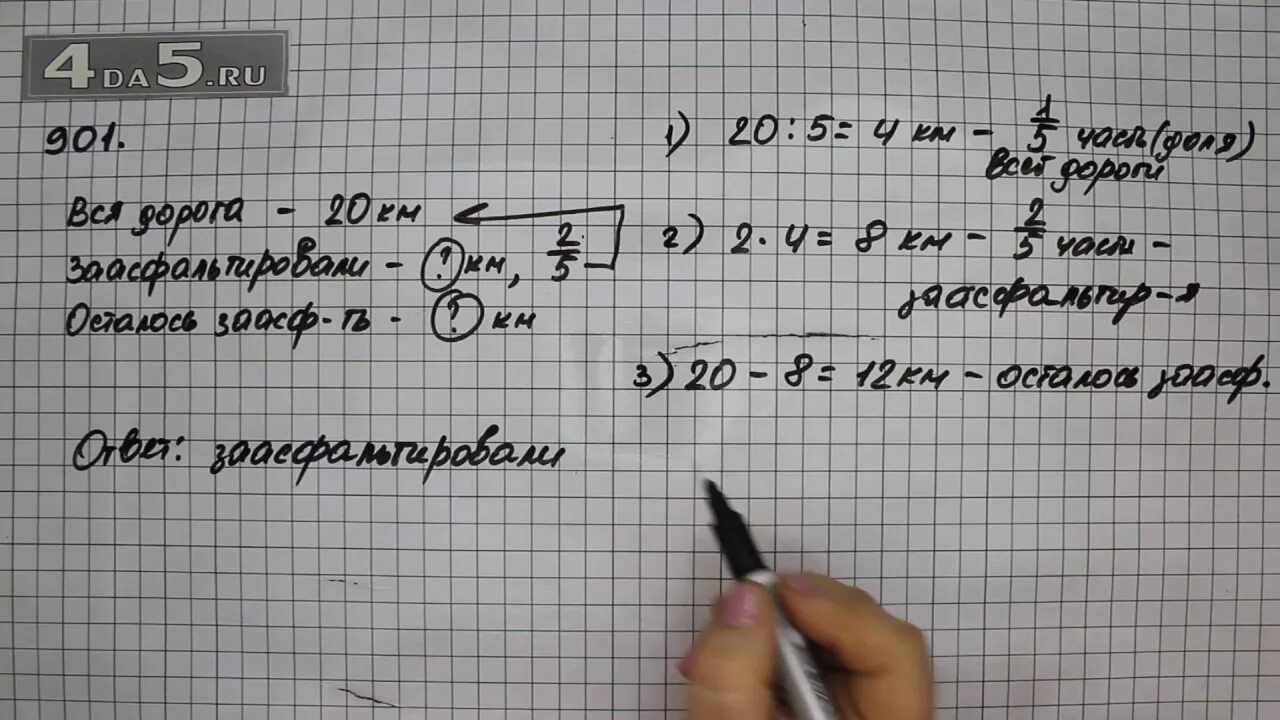 4DA5.RU
901.
Вся дорога - 20 км
Заасфальтировали - ? км, 2/5
Осталось заасф-ть - ? км
1) 20 : 5 = 4 км - 1/5 часть (доля)
всей дороги
2) 2 · 4 = 8 км - 2/5 части -
заасфальтир-я
3) 20 - 8 = 12 км - осталось заасф.
Ответ: заасфальтировали